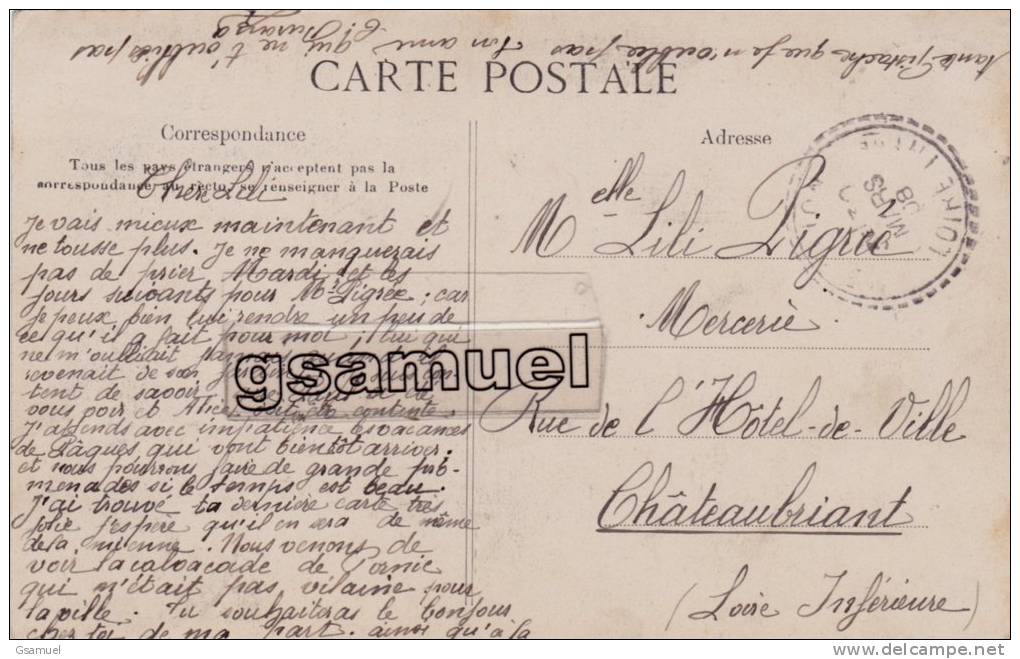 tante Pistache que je n'oublie pas Ton ami qui ne t'oublie pas
CARTE POSTALE
Correspondance
Tous les pays étrangers n'acceptent pas la
correspondance au recto, se renseigner à la Poste
Chère Lili
Je vais mieux maintenant et
ne tousse plus. Je ne manquerais
pas de prier Mardi et les
jours suivants pour Mr Pigrée; car
je peux bien lui rendre un peu de
ce qu'il a fait pour moi, lui qui
ne m'oubliait
venait de son
tent de savoir
vous voir et Alice contente.
J'attends avec impatience les vacances
de Pâques qui vont bientôt arriver.
et nous pourrons faire de grande pro-
menades si le temps est beau.
J'ai trouvé ta dernière carte très
jolie j'espère qu'il en sera de même
de la mienne. Nous venons de
voir la cavalcade de Pornic
qui n'était pas vilaine pour
la ville. Tu souhaiteras le bonjour
chez toi de ma part ainsi qu'à la
Adresse
Melle Lili Pigrée
Mercerie
Rue de l'Hôtel-de-Ville
Châteaubriant
(Loire Inférieure)
MARS
08
LOIRE INFRE
gsamuel
Gsamuel
delcampe.net